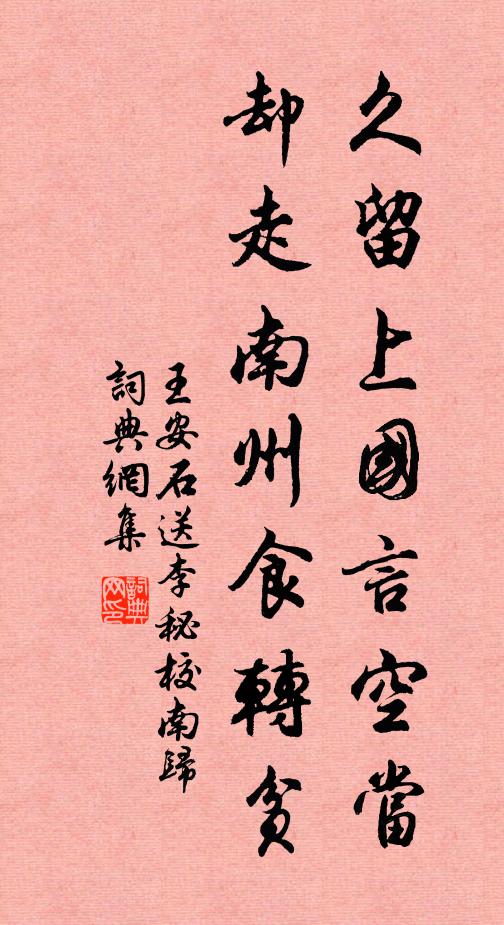 久留上國言空當
却走南州食轉貧
王安石送李秘校南歸
詞典網集
詞典
网印